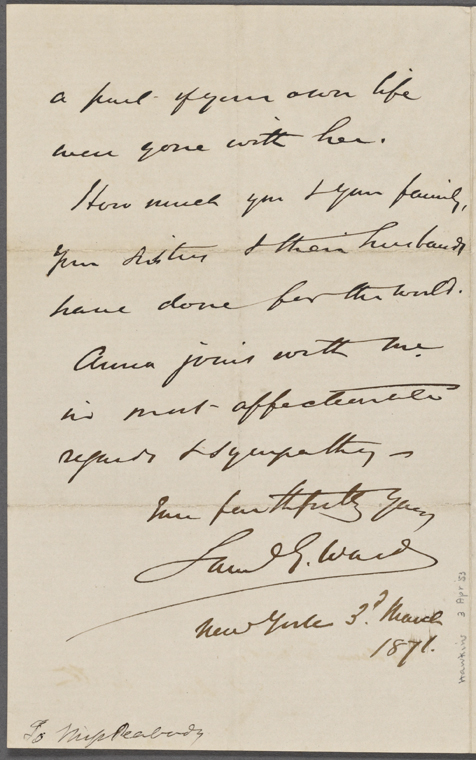 a part of your own life
were gone with her.
How much you & your family,
your sisters & their husbands
have done for the world.
Anna joins with me
in most affectionate
regards & sympathy –
Ever faithfully Yours
Saml G. Ward
New York 3d March
1871.
To Miss Peabody
Hawkins 3 Apr 53